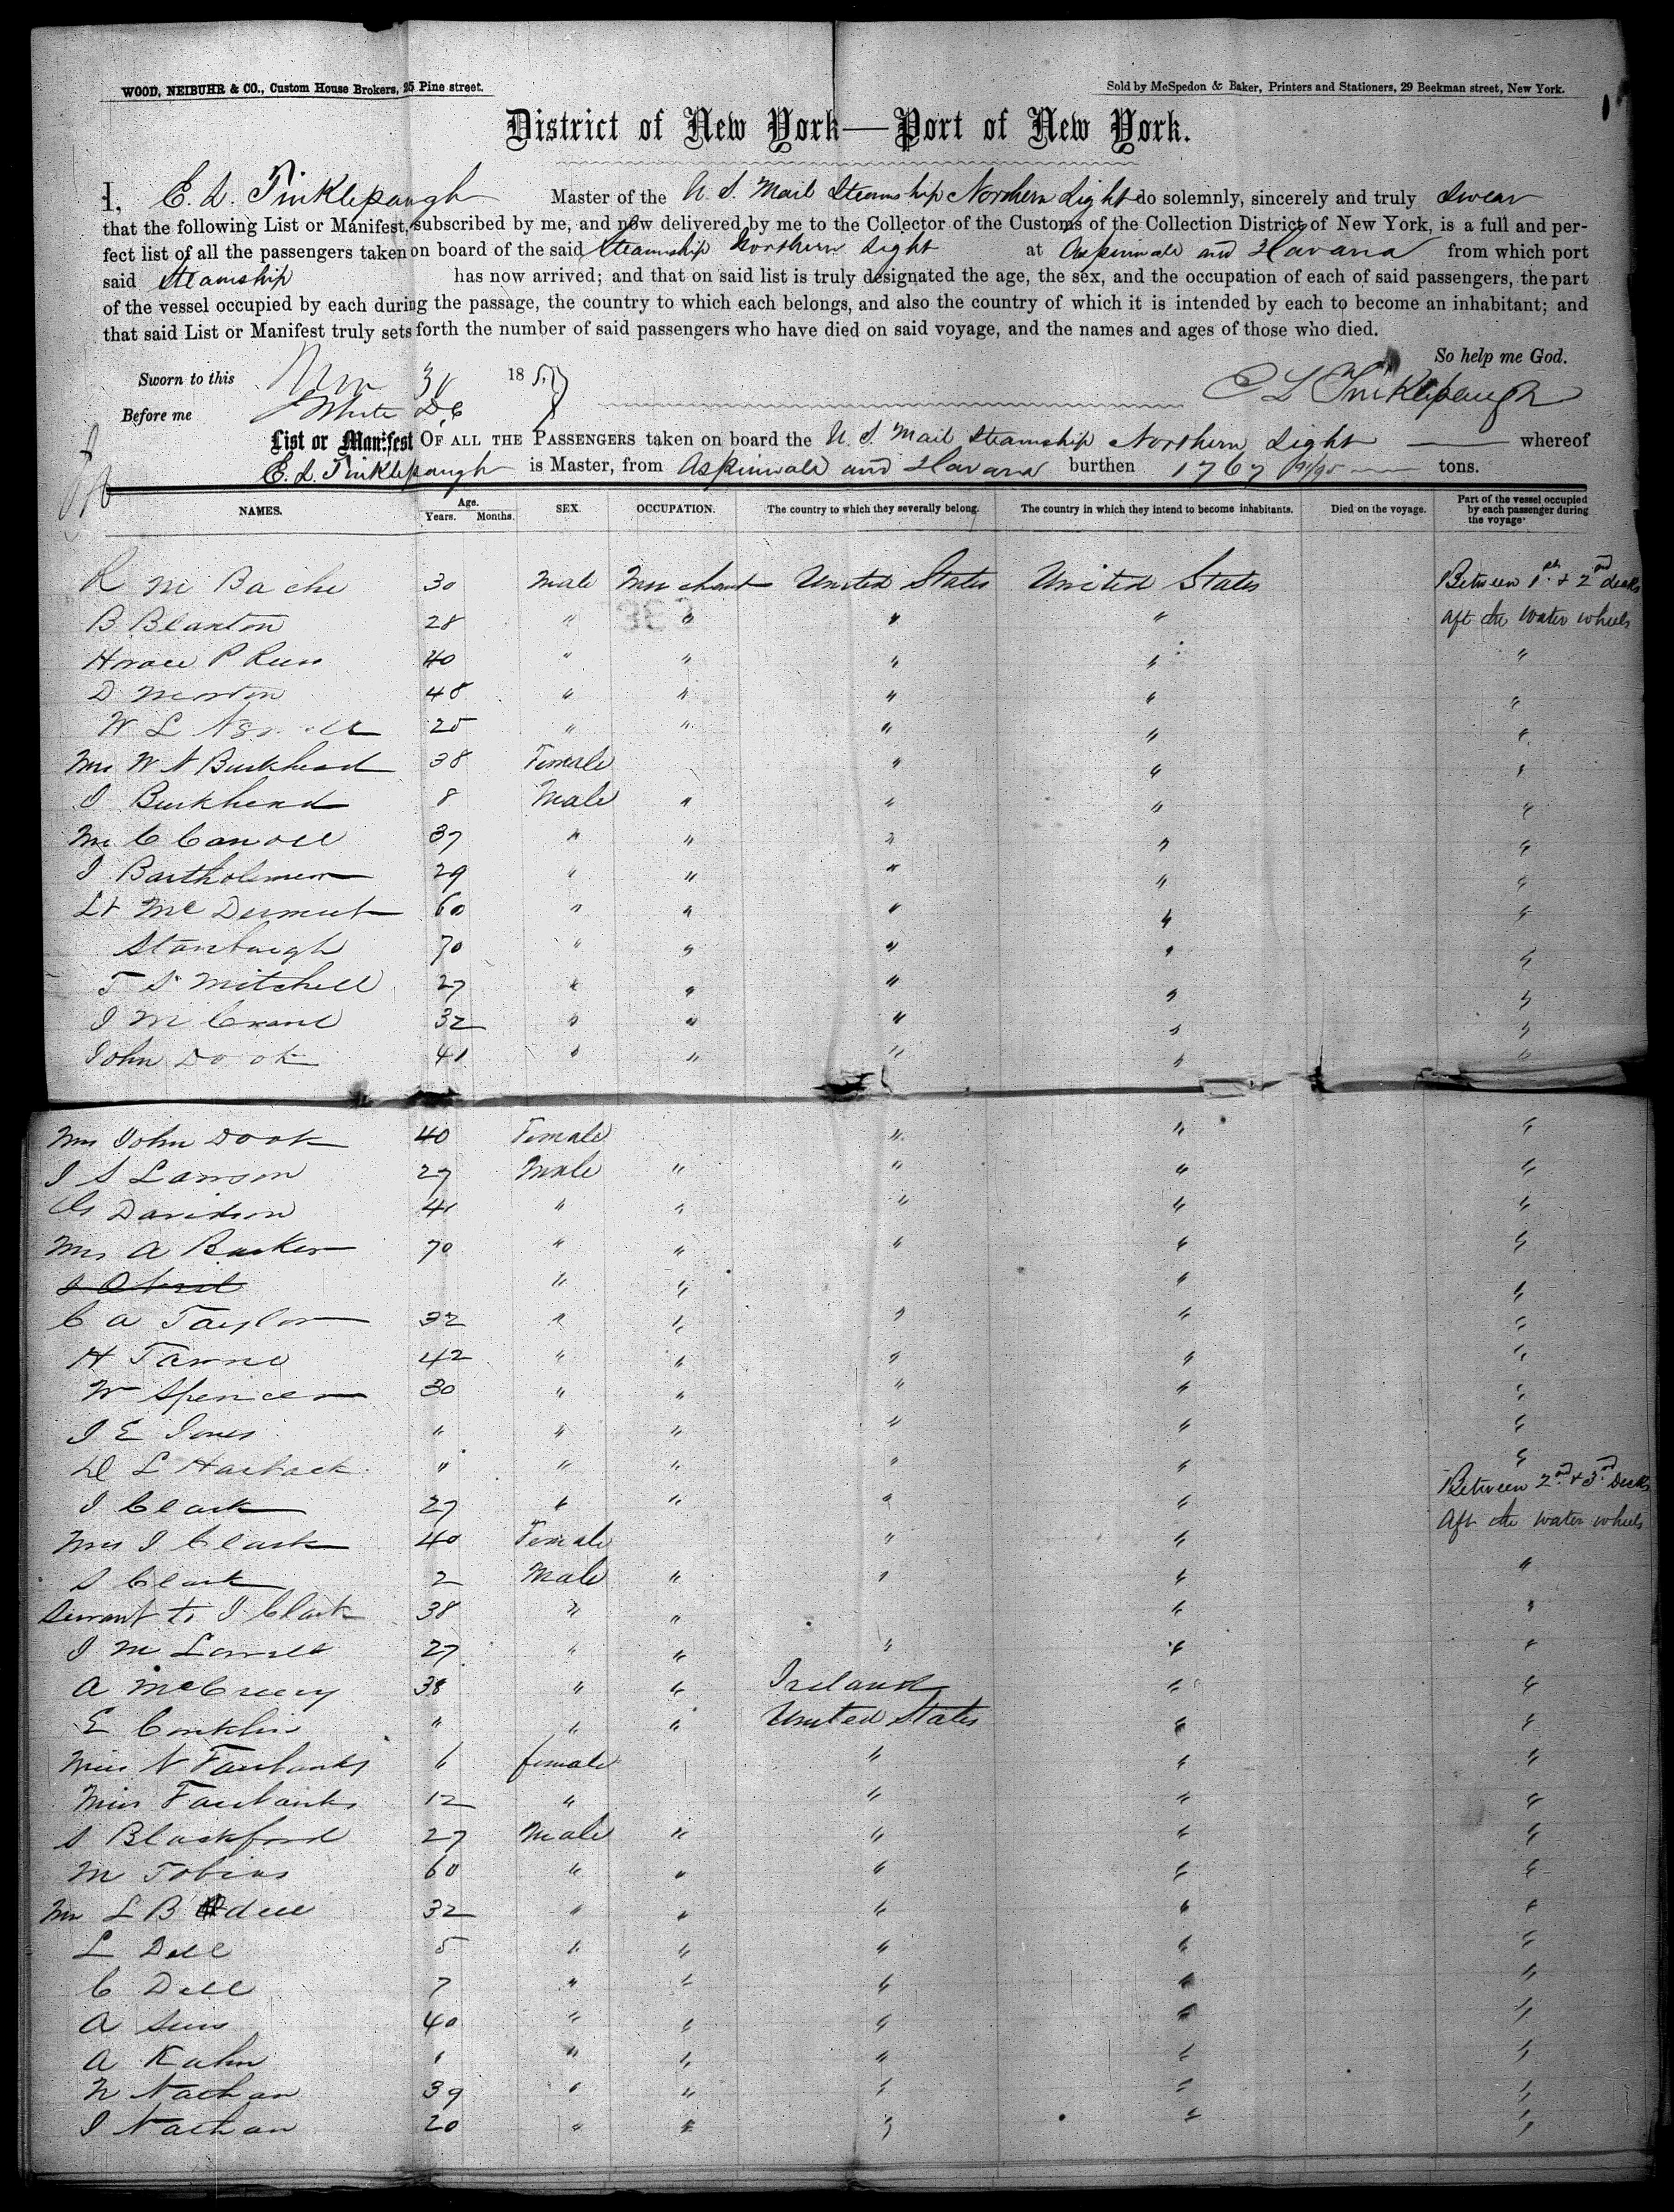 WOOD, NEIBUHR & CO., Custom House Brokers, 25 Pine street.
Sold by McSpedon & Baker, Printers and Stationers, 29 Beekman street, New York.
District of New York—Port of New York.
I, E. L. Tinklepaugh Master of the U. S. Mail Steamship Northern Light do solemnly, sincerely and truly swear
that the following List or Manifest, subscribed by me, and now delivered by me to the Collector of the Customs of the Collection District of New York, is a full and per-
fect list of all the passengers taken on board of the said Steamship Northern Light at Aspinwall and Havana from which port
said Steamship has now arrived; and that on said list is truly designated the age, the sex, and the occupation of each of said passengers, the part
of the vessel occupied by each during the passage, the country to which each belongs, and also the country of which it is intended by each to become an inhabitant; and
that said List or Manifest truly sets forth the number of said passengers who have died on said voyage, and the names and ages of those who died.
So help me God.
Sworn to this Nov 30 1857
E L Tinklepaugh
Before me White DC
List or Manifest OF ALL THE PASSENGERS taken on board the U. S. Mail Steamship Northern Light whereof
E. L. Tinklepaugh is Master, from Aspinwall and Havana burthen 1767 91/95 tons.
NAMES. Age. Years. Months. SEX. OCCUPATION. The country to which they severally belong. The country in which they intend to become inhabitants. Died on the voyage. Part of the vessel occupied by each passenger during the voyage.
R M Bache 30 Male Merchant United States United States Between 1st & 2nd decks
B Blanton 28 " " " " aft the water wheels
Horace P Russ 40 " " " " "
D Morton 48 " " " " "
W L 25 " " " " "
Mrs W N Burkhead 38 Female " " "
J Burkhead 8 Male " " " "
Mr C Carroll 37 " " " " "
J Bartholomew 29 " " " " "
Lt McDermut 60 " " " " "
Stanburgh 70 " " " " "
T S Mitchell 27 " " " " "
J M Crane 32 " " " " "
John Dook 41 " " " " "
Mrs John Dook 40 Female " " "
J S Lawson 27 Male " " " "
G Davidson 41 " " " " "
Mrs A Barker 70 " " " " "
" " " "
C A Taylor 32 " " " " "
H Tanne 42 " " " " "
W Spencer 30 " " " " "
J E Jones " " " " " "
D L Harback " " " " " "
J Clark 27 " " " " Between 2nd & 3rd Decks
Mrs J Clark 40 Female " " Aft the water wheels
S Clark 2 Male " " " "
Servant to J Clark 38 " " " "
J M Lowell 27 " " " " "
A McCreery 38 " " Ireland " "
E Conklin " " " United States " "
Miss N Fairbanks 6 female " " "
Miss Fairbanks 12 " " " "
S Blackford 27 Male " " " "
M Tobias 60 " " " " "
Mr L B dell 32 " " " " "
L Dell 5 " " " " "
C Dell 7 " " " " "
A Sims 40 " " " " "
A Kahn " " " " " "
N Nathan 39 " " " " "
J Nathan 20 " " " " "